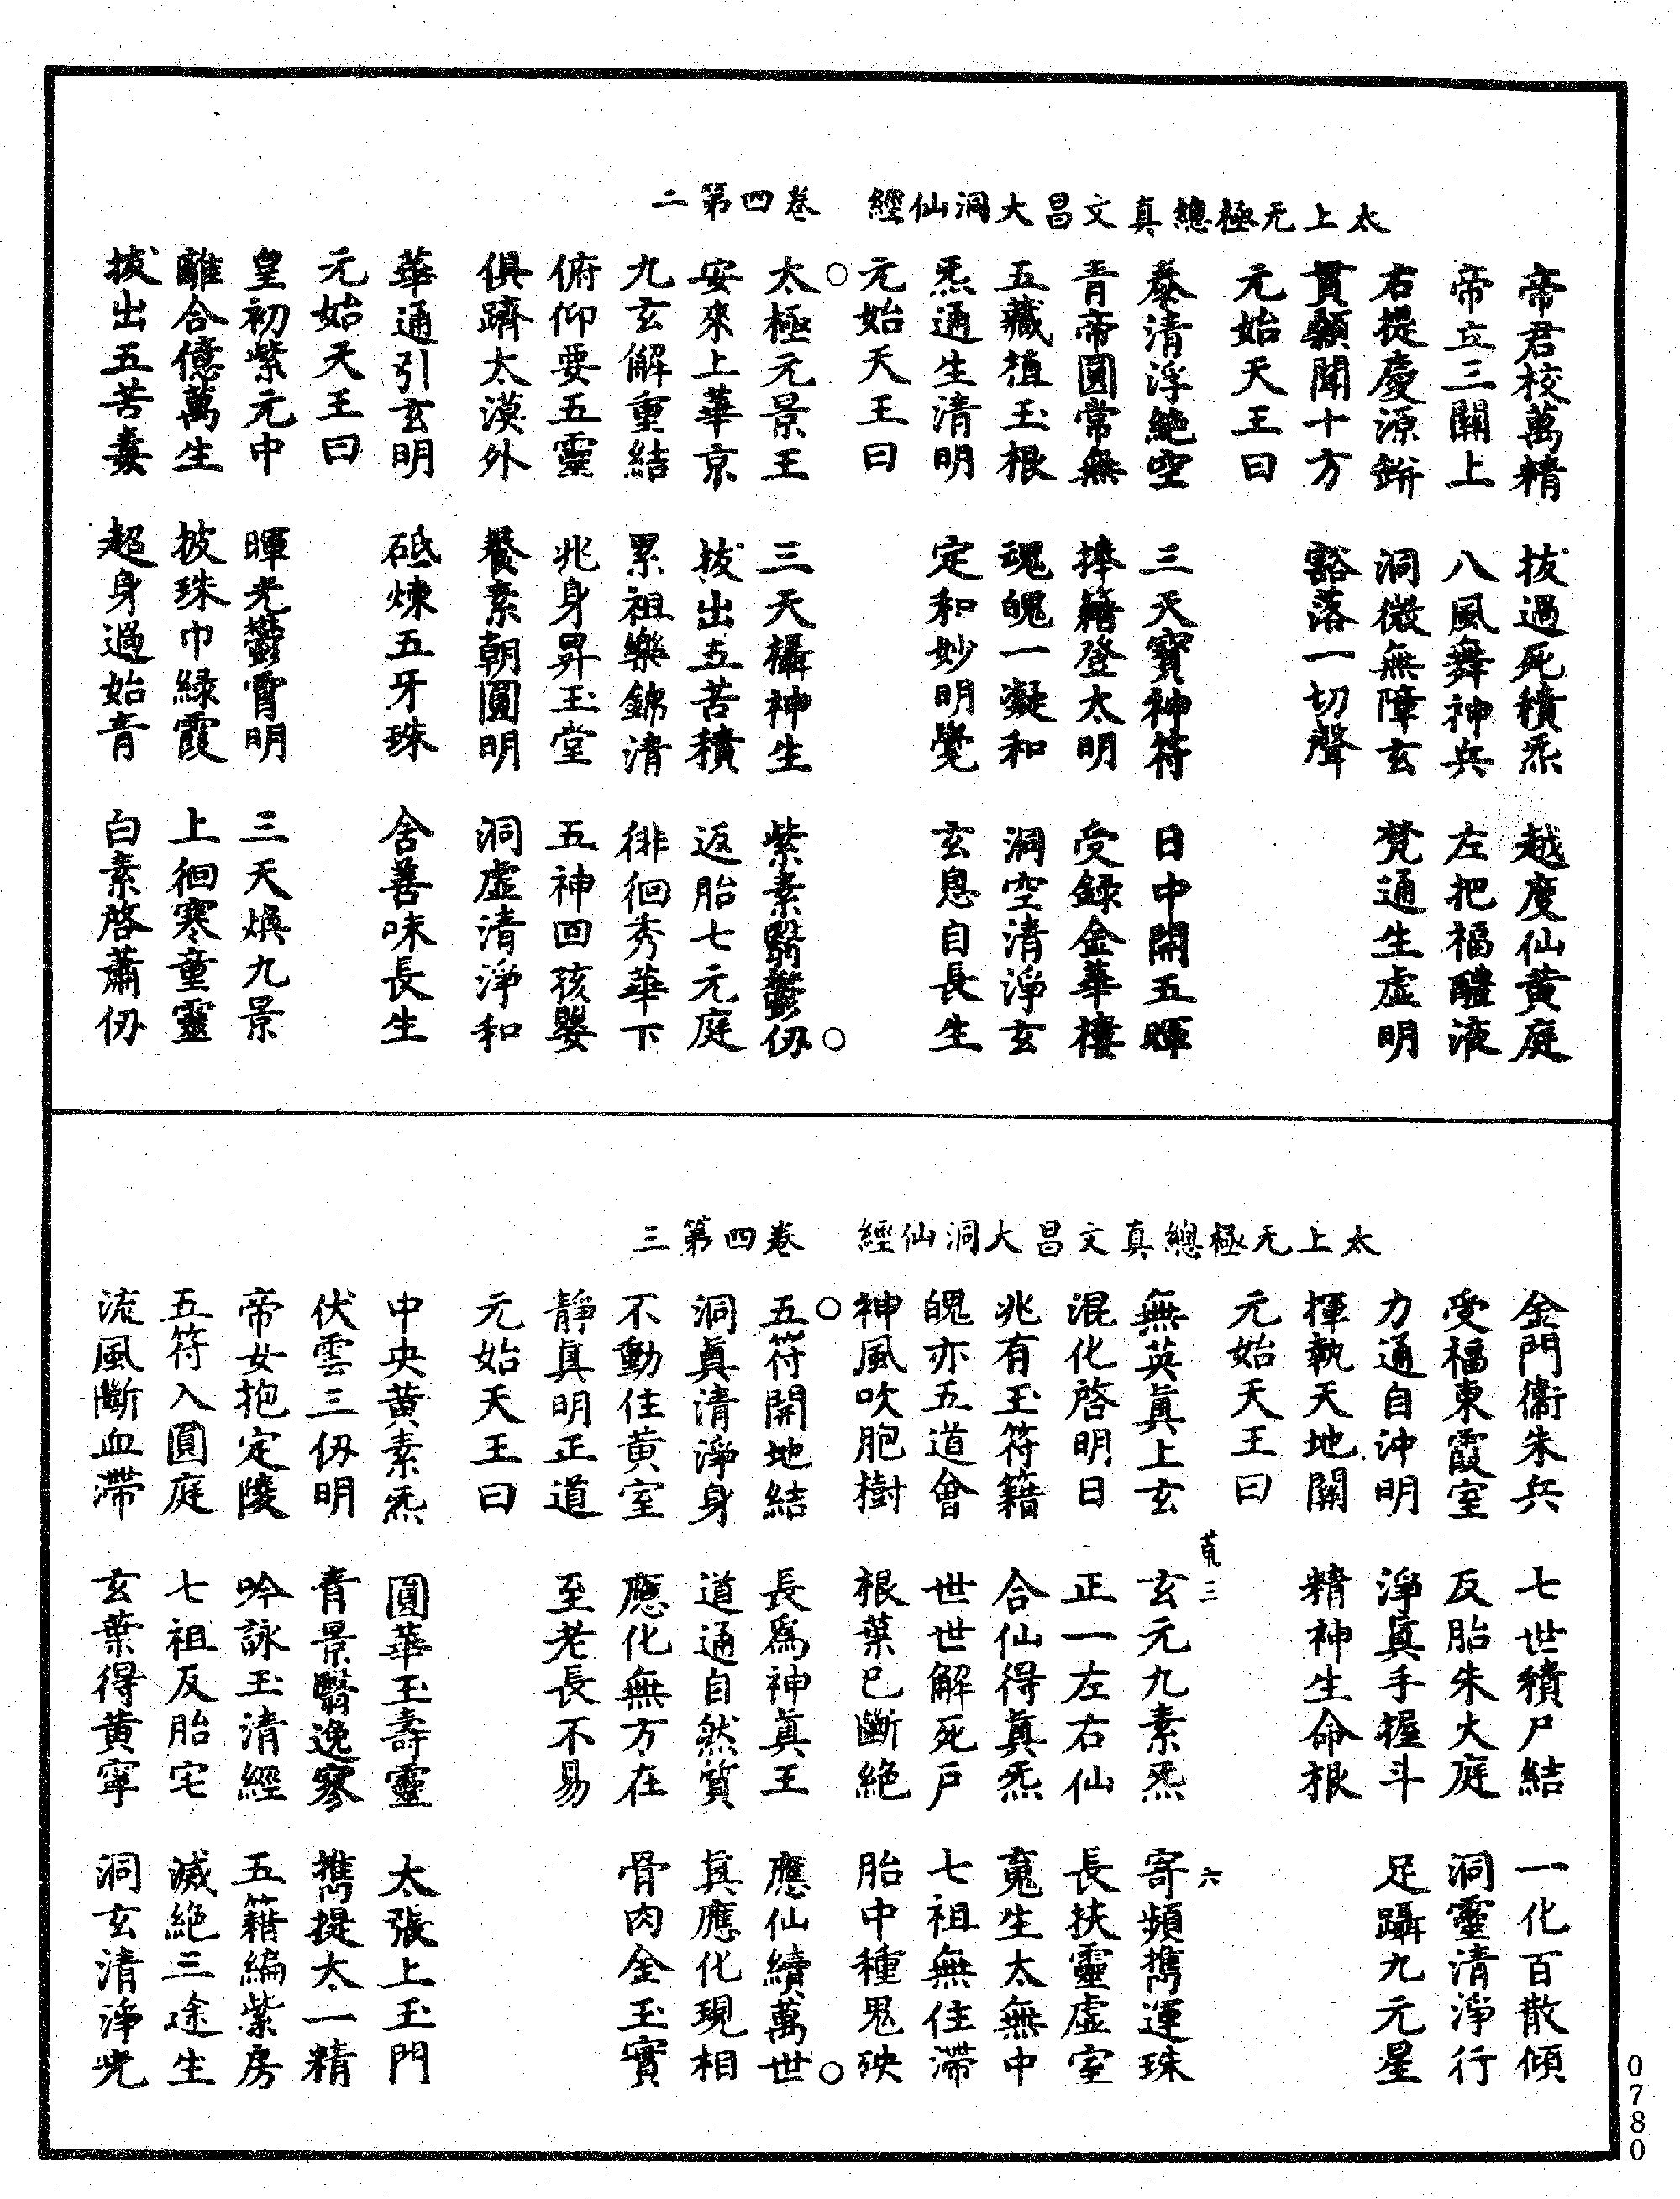 太上无極總真文昌大洞仙經　卷四第二
帝君校萬精　拔過死積炁　越度仙黃庭
帝立三關上　八風舞神兵　左把福醴液
右提慶源缾　洞微無障玄　梵通生虛明
貫顥聞十方　豁落一切聲
元始天王曰
泰清浮絶空　三天寶神符　日中開五暉
青帝圓常無　捧籍登太明　受録金華樓
五藏植玉根　魂魄一凝和　洞空清淨玄
炁通生清明　定和妙明覺　玄息自長生
元始天王曰
○太極元景王　三天攝神生　紫素翳鬱仭○
安來上華京　拔出五苦積　返胎七元庭
九玄解重結　累祖樂錦清　徘徊秀華下
俯仰要五靈　兆身昇玉堂　五神回孩嬰
俱躋太漠外　餐素朝圓明　洞虛清淨和
華通引玄明　砥煉五牙珠　舍善味長生
元始天王曰
皇初紫元中　暉光鬱霄明　三天煥九景
離合億萬生　披珠巾緑霞　上徊寒童靈
拔出五苦毒　超身過始青　白素啓蕭仭
太上无極總真文昌大洞仙經　卷四第三
金門衞朱兵　七世積尸結　一化百散傾
受福東霞室　反胎朱火庭　洞靈清淨行
力通自沖明　淨眞手握斗　足躡九元星
揮執天地關　精神生命根
元始天王曰
荒三　六
無英眞上玄　玄元九素炁　寄頻擕運珠
混化啓明日　正一左右仙　長扶靈虛室
兆有玉符籍　合仙得眞炁　寬生太無中
魄亦五道會　世世解死戸　七祖無住滯
神風吹胞樹　根葉已斷絶　胎中種鬼殃
○五符開地結　長爲神眞王　應仙續萬世○
洞眞清淨身　道通自然質　眞應化現相
不動住黃室　應化無方在　骨肉金玉實
靜眞明正道　至老長不易
元始天王曰
中央黃素炁　圓華玉壽靈　太張上玉門
伏雲三仭明　青景翳逸寥　擕提太一精
帝女抱定陵　吟詠玉清經　五籍編紫房
五符入圓庭　七祖反胎宅　滅絶三途生
流風斷血滯　玄葉得黃寧　洞玄清淨光
0780